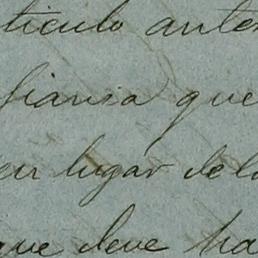 ticulo anter
fianza que
en lugar de la
que deve ha